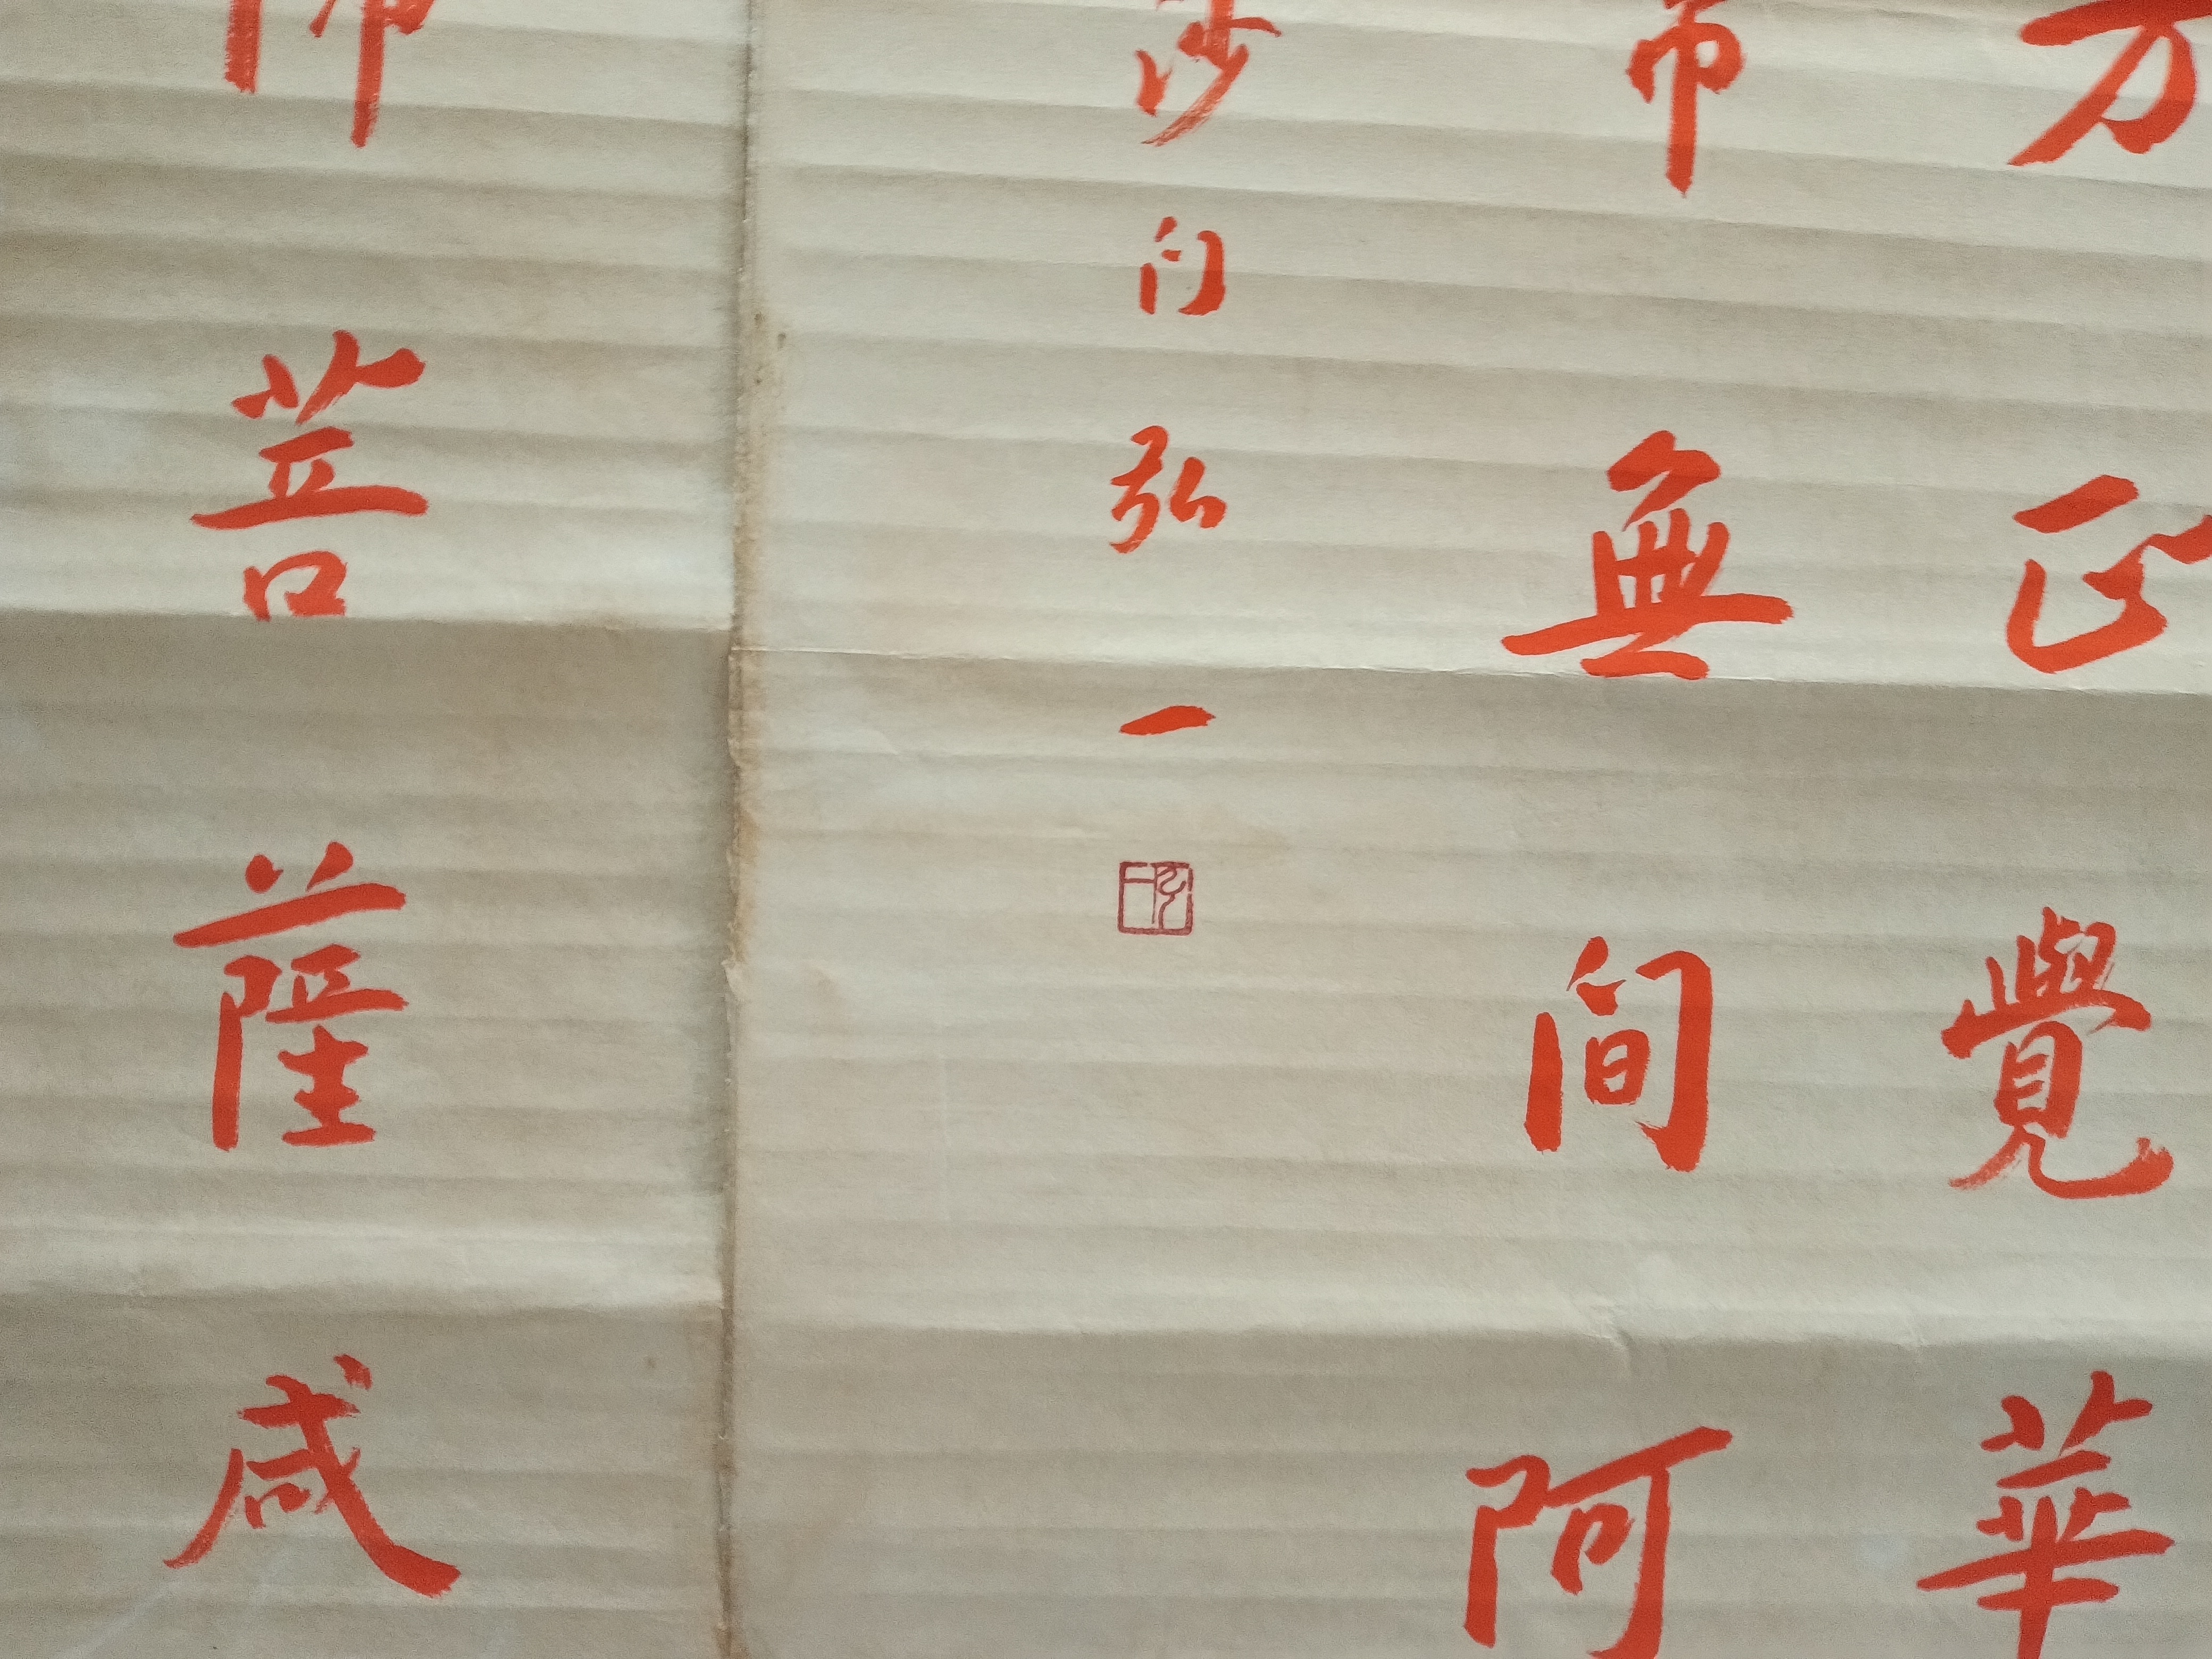 方正覺華
帝無間阿
沙门弘一
師菩薩咸